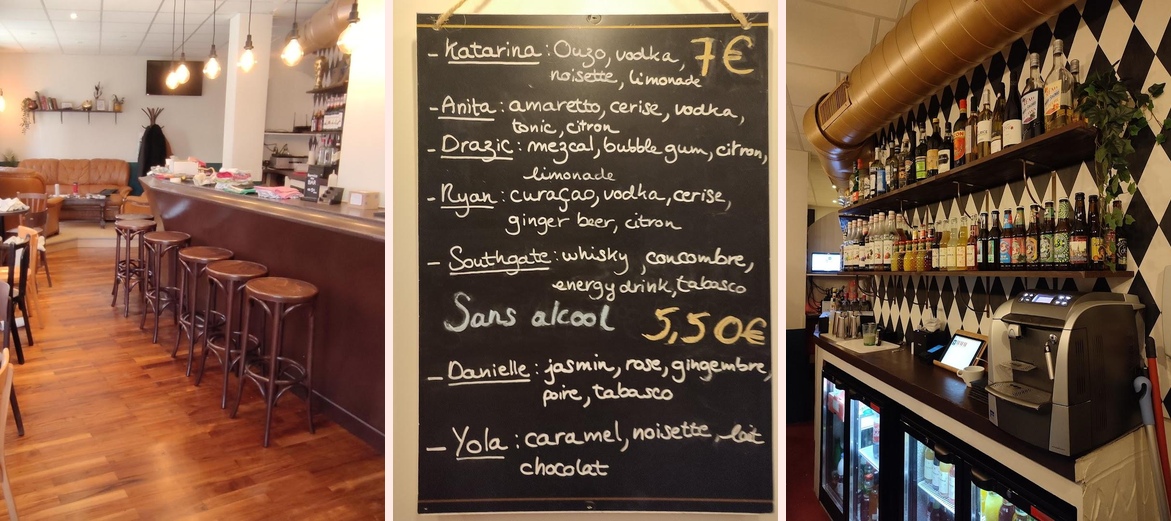 - Katarina : Ouzo, vodka, 7€
noisette, limonade
- Anita : amaretto, cerise, vodka,
tonic, citron
- Drazic : mezcal, bubble gum, citron,
limonade
- Ryan : curaçao, vodka, cerise,
ginger beer, citron
- Southgate : whisky, concombre,
energy drink, tabasco
Sans alcool 5,50€
- Danielle : jasmin, rose, gingembre,
poire, tabasco
- Yola : caramel, noisette, lait
chocolat